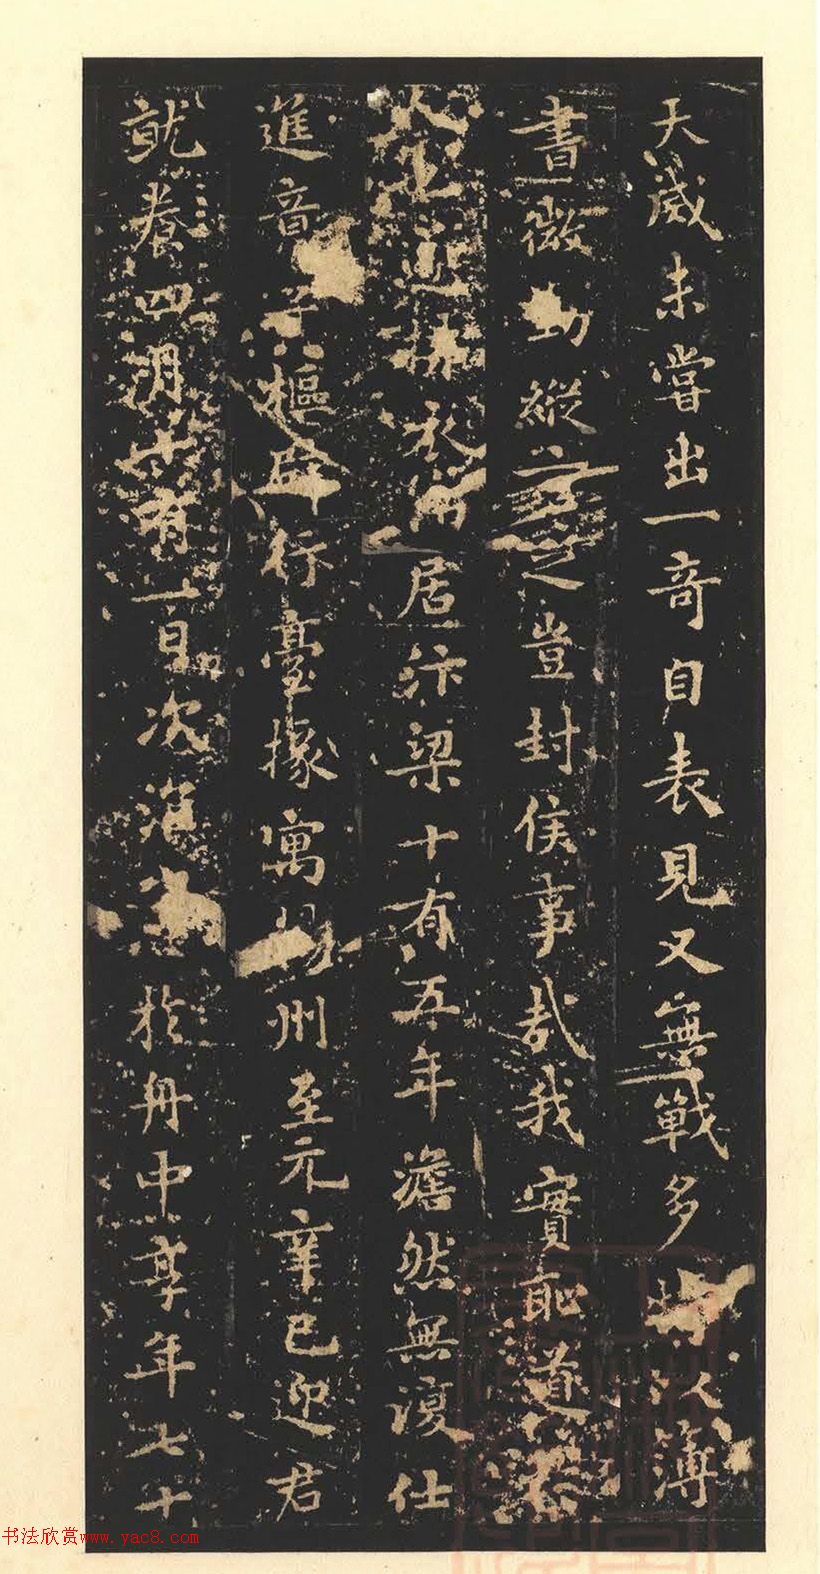 天威未嘗出一奇自表見又無戰多特以簿
書微功縱之豈封侯事哉我實恥道
居汴梁十有五年澹然無復仕
進音樞辟行臺掾寓揚州至元辛巳迎君
就養四明十有一日次於舟中享年七十
书法欣赏www.yac8.com